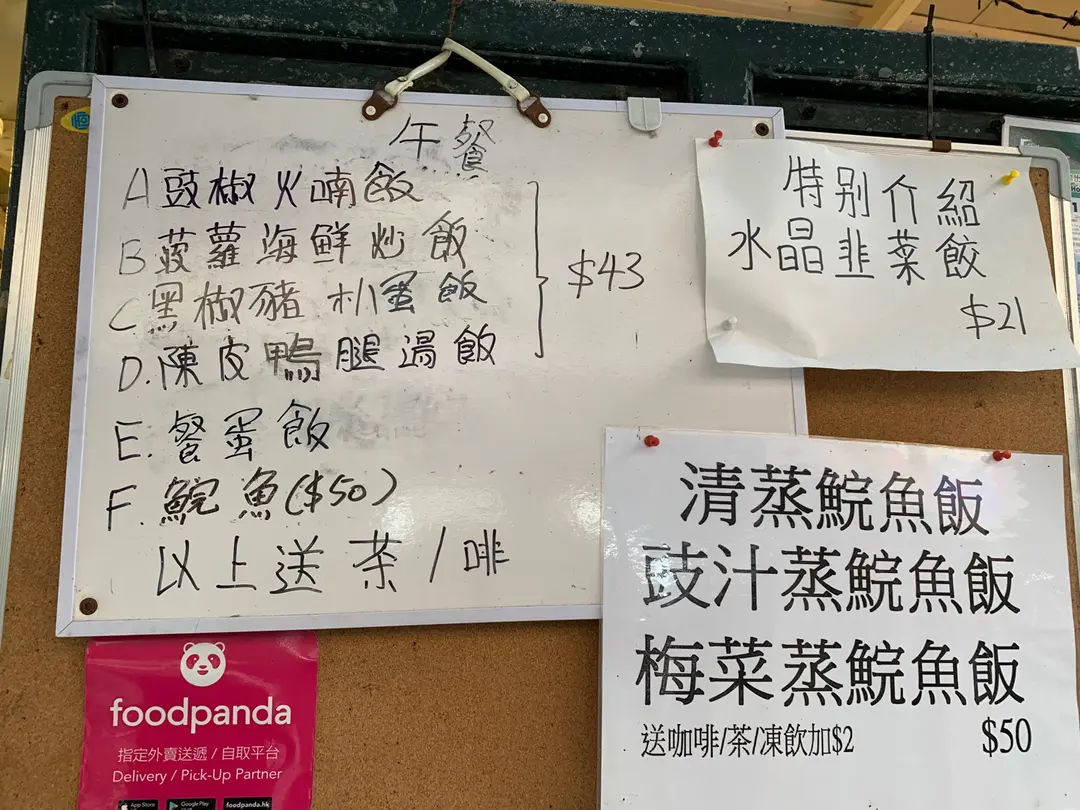 午餐
A 豉椒火喃飯
B 菠蘿海鮮炒飯
C 黑椒豬扒蛋飯
D. 陳皮鴨腿湯飯
$43
E. 餐蛋飯
F. 鯇魚($50)
以上送茶/啡
特别介紹
水晶韭菜餃
$21
清蒸鯇魚飯
豉汁蒸鯇魚飯
梅菜蒸鯇魚飯
送咖啡/茶/凍飲加$2 $50
foodpanda
指定外賣送遞 / 自取平台
Delivery / Pick-Up Partner
App Store Google Play foodpanda.hk